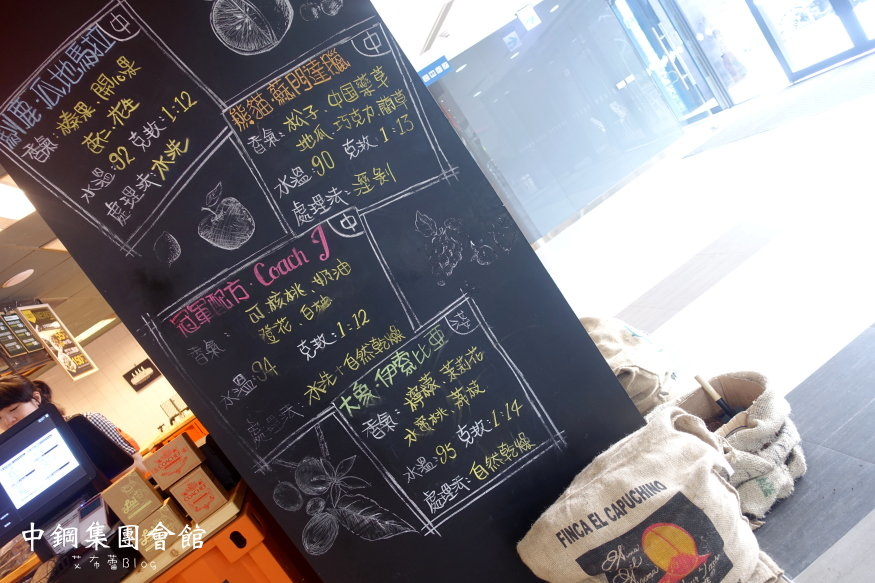 瓜地馬拉
香氣：榛果、開心果
杏仁、花生
水溫：92 克數：1:12
處理法：水洗
中
熊貓 蘇門達臘
香氣：松子、中国藥草
地瓜、巧克力、蘭草
水溫：90 克数：1:13
處理法：溼剝
中
冠軍配方：Coach J
香氣：可核桃、奶油
橙花、白柚
水溫：94 克数：1:12
處理法：水洗+自然乾燥
大象 伊索比亞
香氣：檸檬、茉莉花
水蜜桃、黄波
水溫：95 克数：1:14
處理法：自然乾燥
FINCA EL CAPUCHINO
中鋼集團會館
艾布蕾Blog